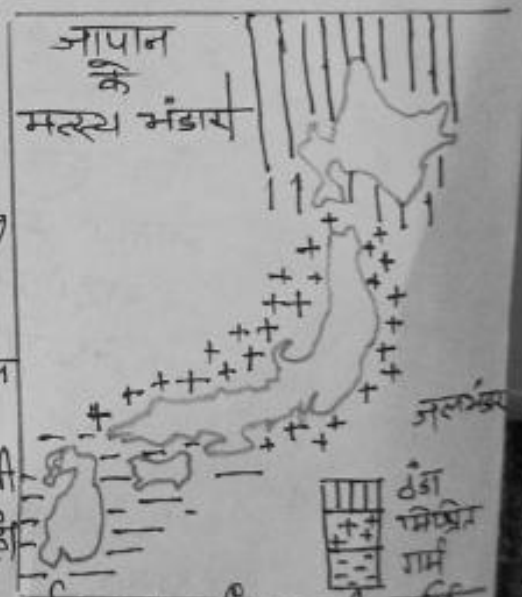 जापान
के
मत्स्य भंडार
ठंडा
मिश्रित
गर्म